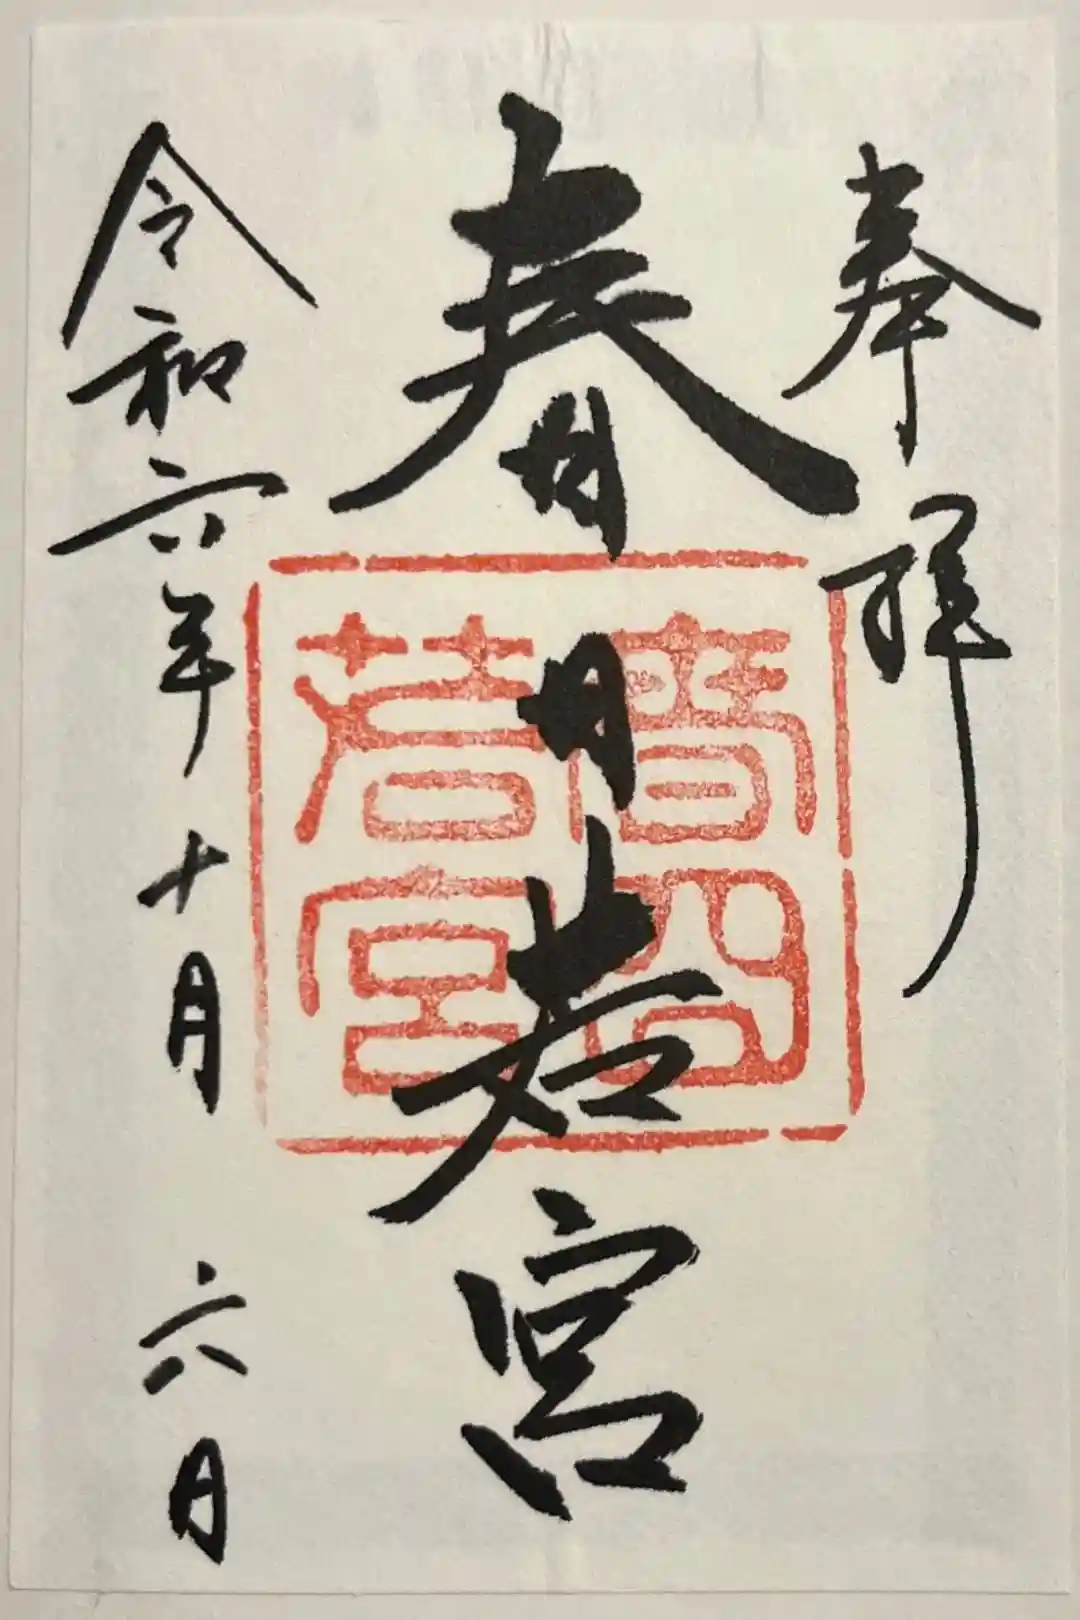 奉拝
春日若宮
令和六年十月六日
普四
若宮